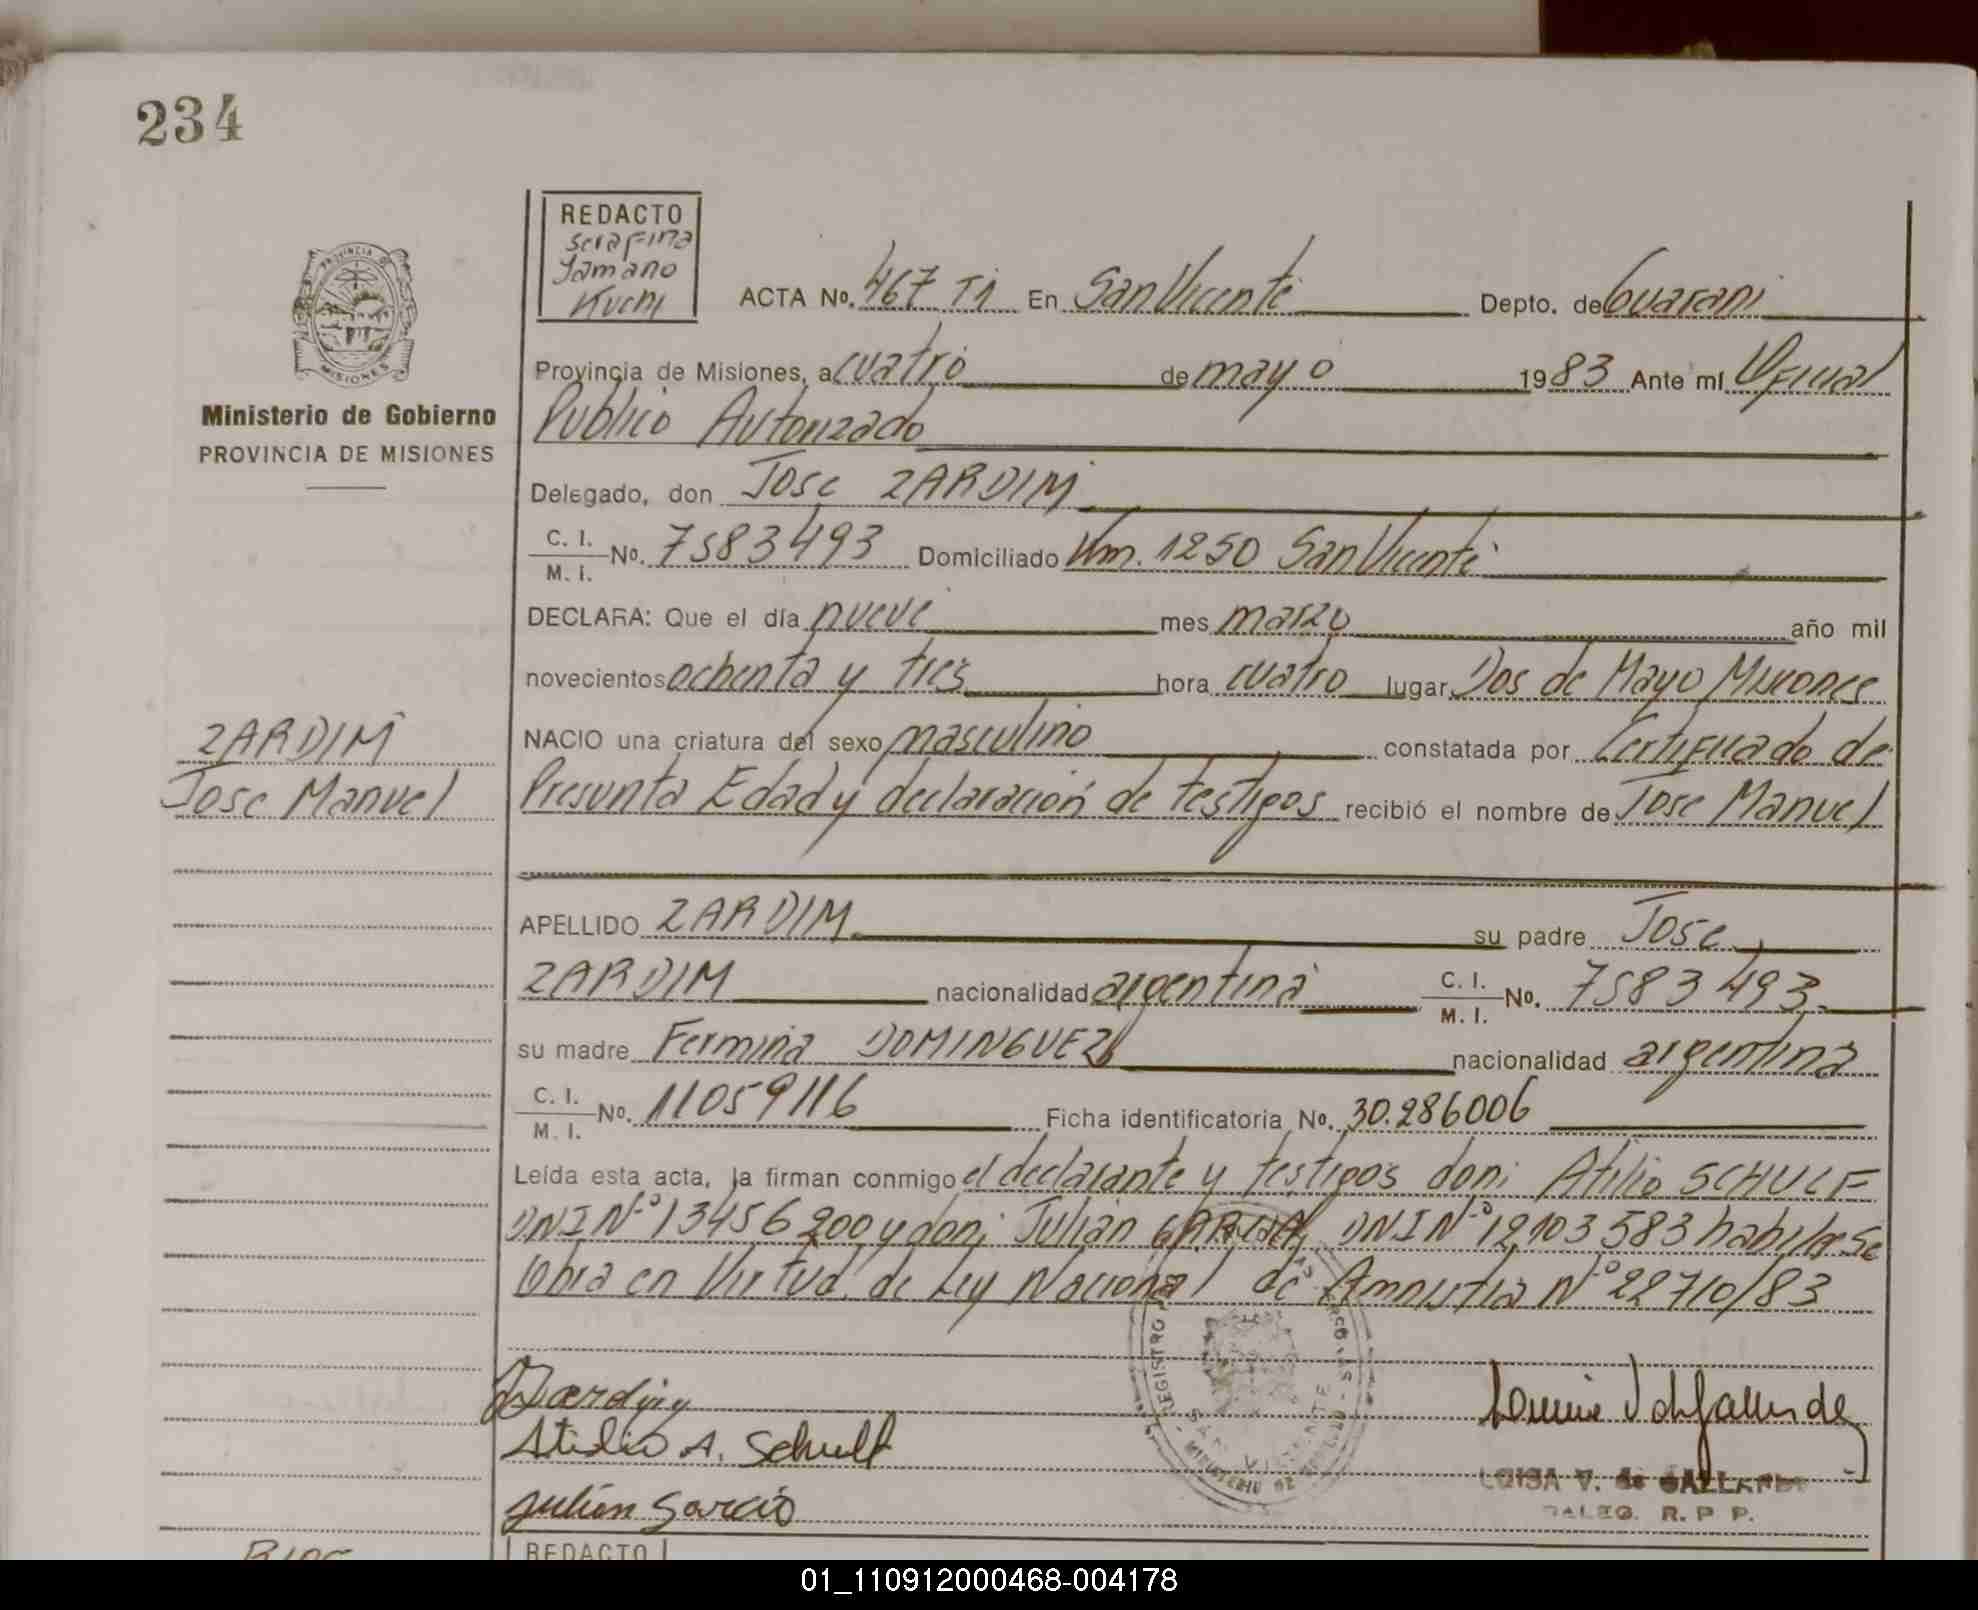 234
REDACTO
Serafina
Kuchi
PROVINCIA DE
MISIONES
Ministerio de Gobierno
PROVINCIA DE MISIONES
ACTA No. 467 T1 En San Vicente Depto. de Guarani
Provincia de Misiones, a cuatro de mayo 1983 Ante mí Oficial
Publico Autorizado
Delegado, don Jose ZARDIM
C. I.
M. I. No. 7583493 Domiciliado Km. 1250 San Vicente
DECLARA: Que el día nueve mes marzo año mil
novecientos ochenta y tres hora cuatro lugar Dos de Mayo Misiones
NACIO una criatura del sexo masculino constatada por Certificado de
Presunta Edad y declaración de testigos recibió el nombre de Jose Manuel
ZARDIM
Jose Manuel
APELLIDO ZARDIM su padre Jose
ZARDIM nacionalidad argentina C. I.
M. I. No. 7583493
su madre Fermina DOMINGUEZ nacionalidad argentina
C. I.
M. I. No. 11059116 Ficha identificatoria No. 30.286006
Leída esta acta, la firman conmigo el declarante y testigos don: Atilio
DNI Nº 13456200 y don: Julian GARCIA DNI Nº 12103583
Obra en Virtud de Ley Nacional de Amnistia Nº 22710/83
Atilio A. Schulf
Julian Garcia
REGISTRO
SAN VICENTE
LUISA V. de GALLARDO
R. P. P.
REDACTO
01_110912000468-004178